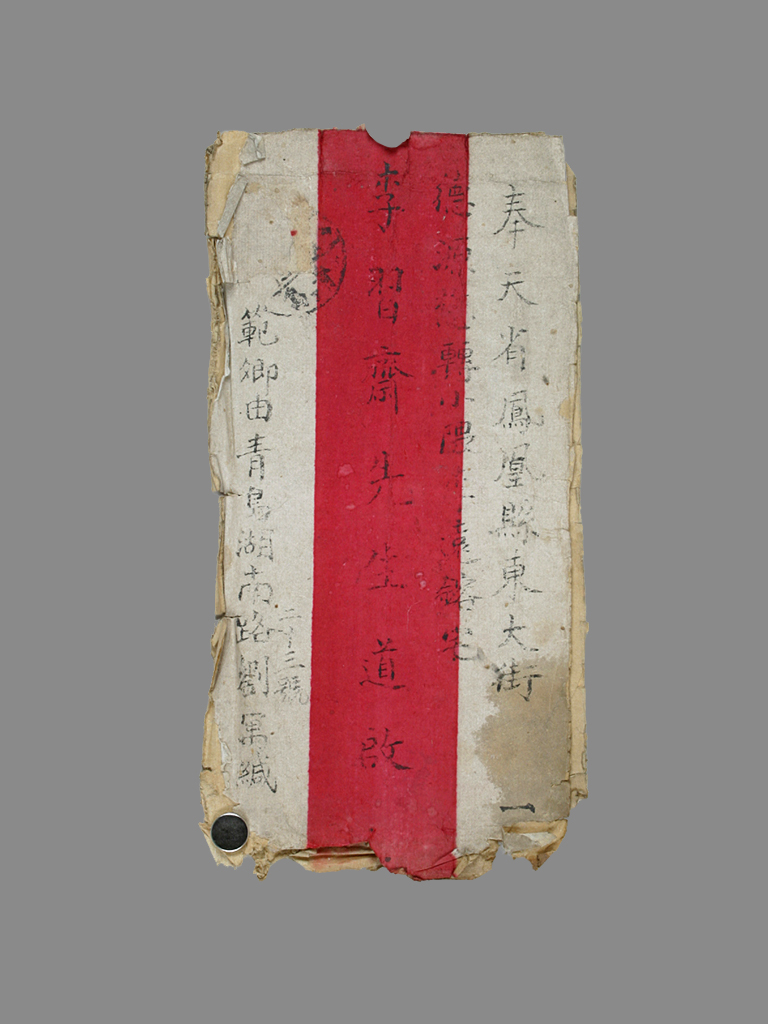 奉天省鳳凰縣東大街
德源 轉小隈 宅
李習齋先生道啟
範卿由青島湖南路劉寓緘
二十三號
一